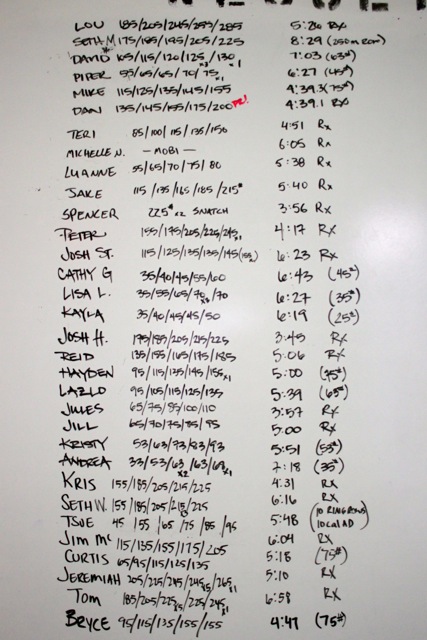 LOU 185/205/245/255/285 5:26 Rx
SETH M 175/185/195/205/225 8:29 (250m ROW)
DAVID 105/115/120/125x3/130x1 7:03 (63#)
PIPER 55/65/65/70/75x1 6:27 (45#)
MIKE 115/125/135/145/155 4:39.3 (75#)
DAN 135/145/155/175/200 PR! 4:39.1 Rx
TERI 85/100/115/135/150 4:51 Rx
MICHELLE N. — MOBI — 6:05 Rx
LUANNE 55/65/70/75/80 5:38 Rx
JAKE 115/135/165/185/215# 5:40 Rx
SPENCER 225# x2 SNATCH 3:56 Rx
PETER 155/175/205/225/245x1 4:17 Rx
JOSH ST. 115/125/135/135/145(155) 6:23 Rx
CATHY G 35/40/45/55/60 6:43 (45#)
LISA L. 35/55/65/70x3/70 6:27 (35#)
KAYLA 35/40/45/45/50 6:19 (25#)
JOSH H. 175/185/205/215/225 3:45 Rx
REID 135/155/165/175/185 5:06 Rx
HAYDEN 95/115/135/145/155x1 5:00 (75#)
LAZLO 95/105/115/125/135 5:39 (65#)
JULES 65/75/85/100/110 3:57 Rx
JILL 65/70/75/85/95 5:00 Rx
KRISTY 53/63/73/83/93 5:51 (53#)
ANDREA 33/53/63x2/63/68x1 7:18 (35#)
KRIS 155/185/205/215/225 4:31 Rx
SETH W. 155/185/205/215/225 6:16 Rx
TSUE 45/55/65/75/85/95 5:48 (10 RING ROWS 10 Cal AD)
Jim Mc 115/135/155/175/205 6:04 Rx
CURTIS 65/95/115/125/135 5:18 (75#)
JEREMIAH 205/225/245/245x5/265x1 5:10 Rx
Tom 185/205/225x5/225/245x1 6:58 Rx
BRYCE 95/115/135/155/155 4:47 (75#)